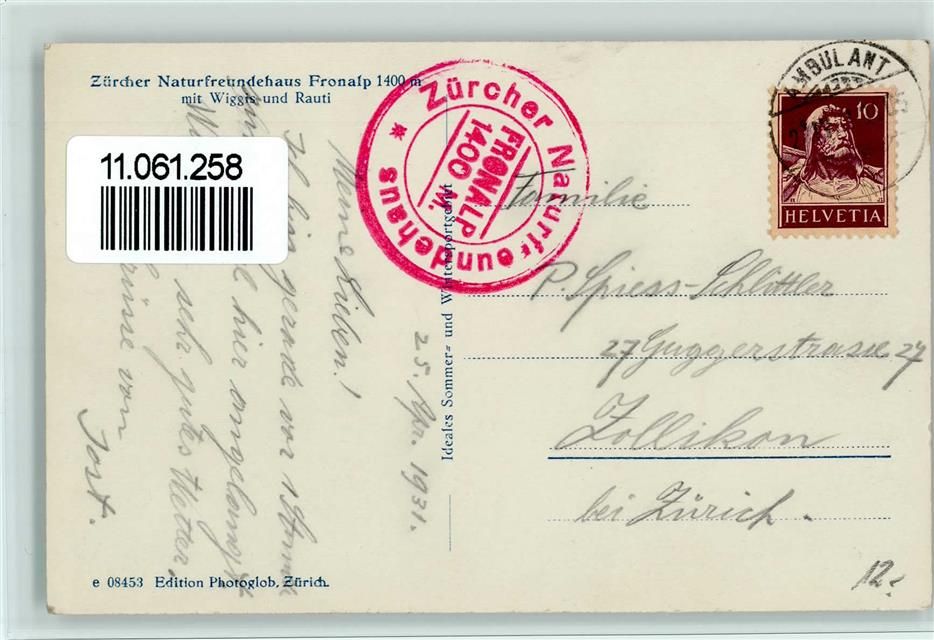 Zürcher Naturfreundehaus Fronalp 1400 m
mit Wiggis und Rauti
11.061.258
Zürcher Naturfreundehaus *
FRONALP
1400 m.
AMBULANT
10
HELVETIA
25. Apr. 1931.
Meine Lieben!
Ich bin gerade vor 1 Stunde
hier angelangt
sehr gutes Wetter.
von
Jost.
Ideales Sommer= und Wintersportgebiet
Familie
P. Spiess-Schlittler
27 Guggerstrasse 27
Zollikon
bei Zürich.
e 08453 Edition Photoglob, Zürich.
12.-